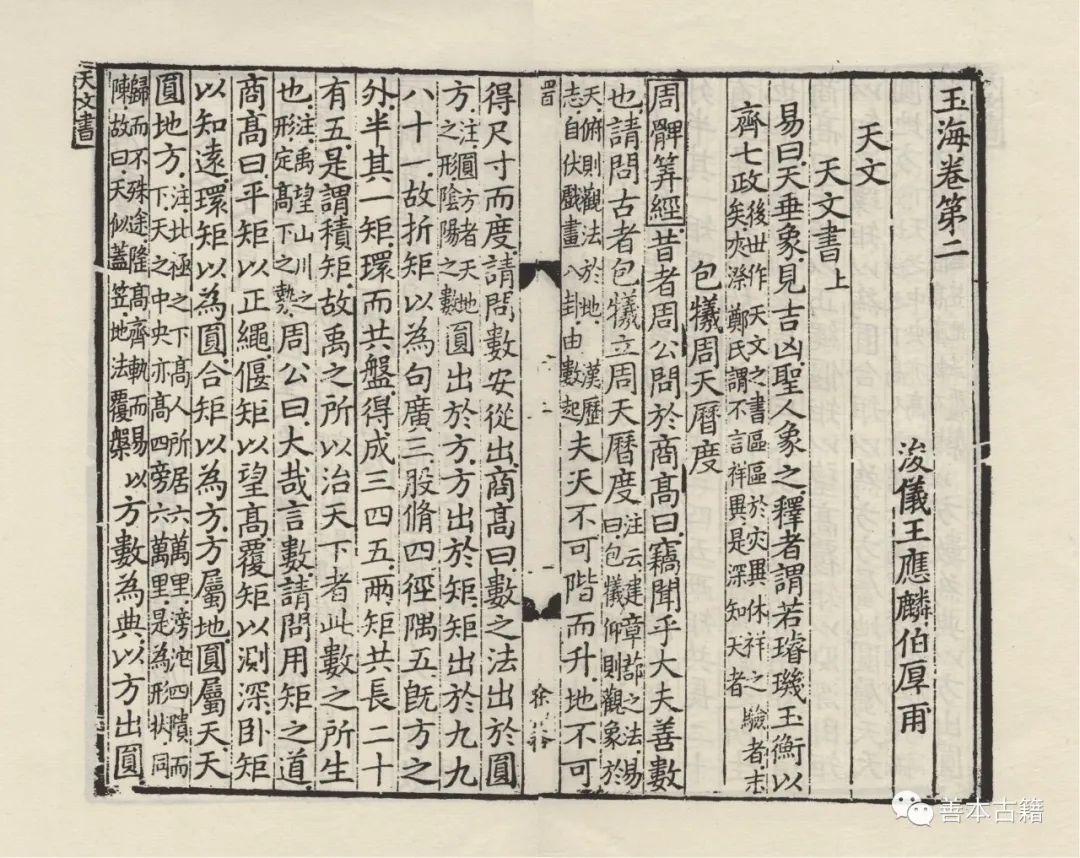 玉海卷第二
浚儀王應麟伯厚甫
天文
天文書上
易曰天垂象見吉凶聖人象之釋者謂若璿璣玉衡以
齊七政後世作天文之書區區於灾異休祥之驗者末
矣夾漈鄭氏謂不言祥異是深知天者
包犧周天曆度
周髀筭經昔者周公問於商高曰竊聞乎大夫善數
也請問古者包犧立周天曆度注云建章蔀之法易
曰包犧仰則觀象於
天俯則觀法於地漢歷
志自伏戲畫八卦由數起夫天不可階而升地不可
得尺寸而度請問數安從出商高曰數之法出於圓
方注圓方者天地
之形陰陽之數圓出於方方出於矩矩出於九九
八十一故折矩以為句廣三股脩四徑隅五旣方之
外半其一矩環而共盤得成三四五兩矩共長二十
有五是謂積矩故禹之所以治天下者此數之所生
也注禹望山川之
形定高下之勢周公曰大哉言數請問用矩之道
商高曰平矩以正繩偃矩以望高覆矩以測深卧矩
以知遠環矩以為圓合矩以為方方屬地圓屬天天
圓地方注北極之下高人所居六萬里滂沱四隤而
下天之中央亦高四旁六萬里是為形狀同
歸而不殊途隆高齊軌而易
陳故曰天似蓋笠地法覆槃以方數為典以方出圓
天文書
二
徐
善本古籍